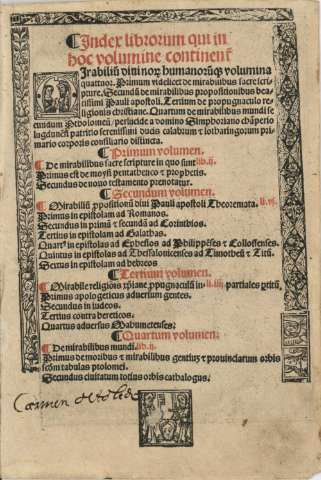 ¶Index librorum qui in
hoc volumine continent̃
Mirabiliũ divinorꝫ humanorũqꝫ volumina
quattuor. Primum videlicet de mirabilibus sacre scri
pture. Secundũ de mirabilibus propositionibus bea
tissimi Pauli apostoli. Tertium de propugnaculo re
ligionis christiane. Quartum de mirabilibus mundi se
cundum Ptolomeũ, perlucide a domino Simphoriano chãperio
lugdunen̄ patricio serenissimi ducis calabrum et lotharingorum primario
corporis consiliario distincta.
¶Primum volumen.
¶De mirabilibus sacre scripture in quo sunt lib. ij.
Primus est de moysi pentatheuco et prophetis.
Secundus de novo testamento prenotatur.
¶Secundum volumen.
¶Mirabiliũ ppositionũ divi Pauli apostoli Theoremata. li. vj.
Primus in epistolam ad Romanos.
Secundus in primã et secundã ad Corinthios.
Tertius in epistolam ad Galathas.
Quart⁹ in epistolas ad Ephesios ad Philippẽses et Collossenses.
Quintus in epistolas ad Thessalonicenses ad Timotheũ et Titũ.
Sextus in epistolam ad hebreos
¶Tertium volumen.
¶Mirabile religiõis xp̃iane ppugnaculũ in. li. iiij. partiales ptitũ.
Primus apologeticus adversum gentes.
Secundus in iudeos.
Tertius contra hereticos.
Quartus adversus Mahumetenses.
¶Quartum volumen.
¶De mirabilibus mundi. lib. ij.
Primus de moribus et mirabilibus gentiuȝ et provinciarum orbis
scd̃m tabulas ptolomei.
Secundus civitatum totius orbis cathalogus.
Carmen